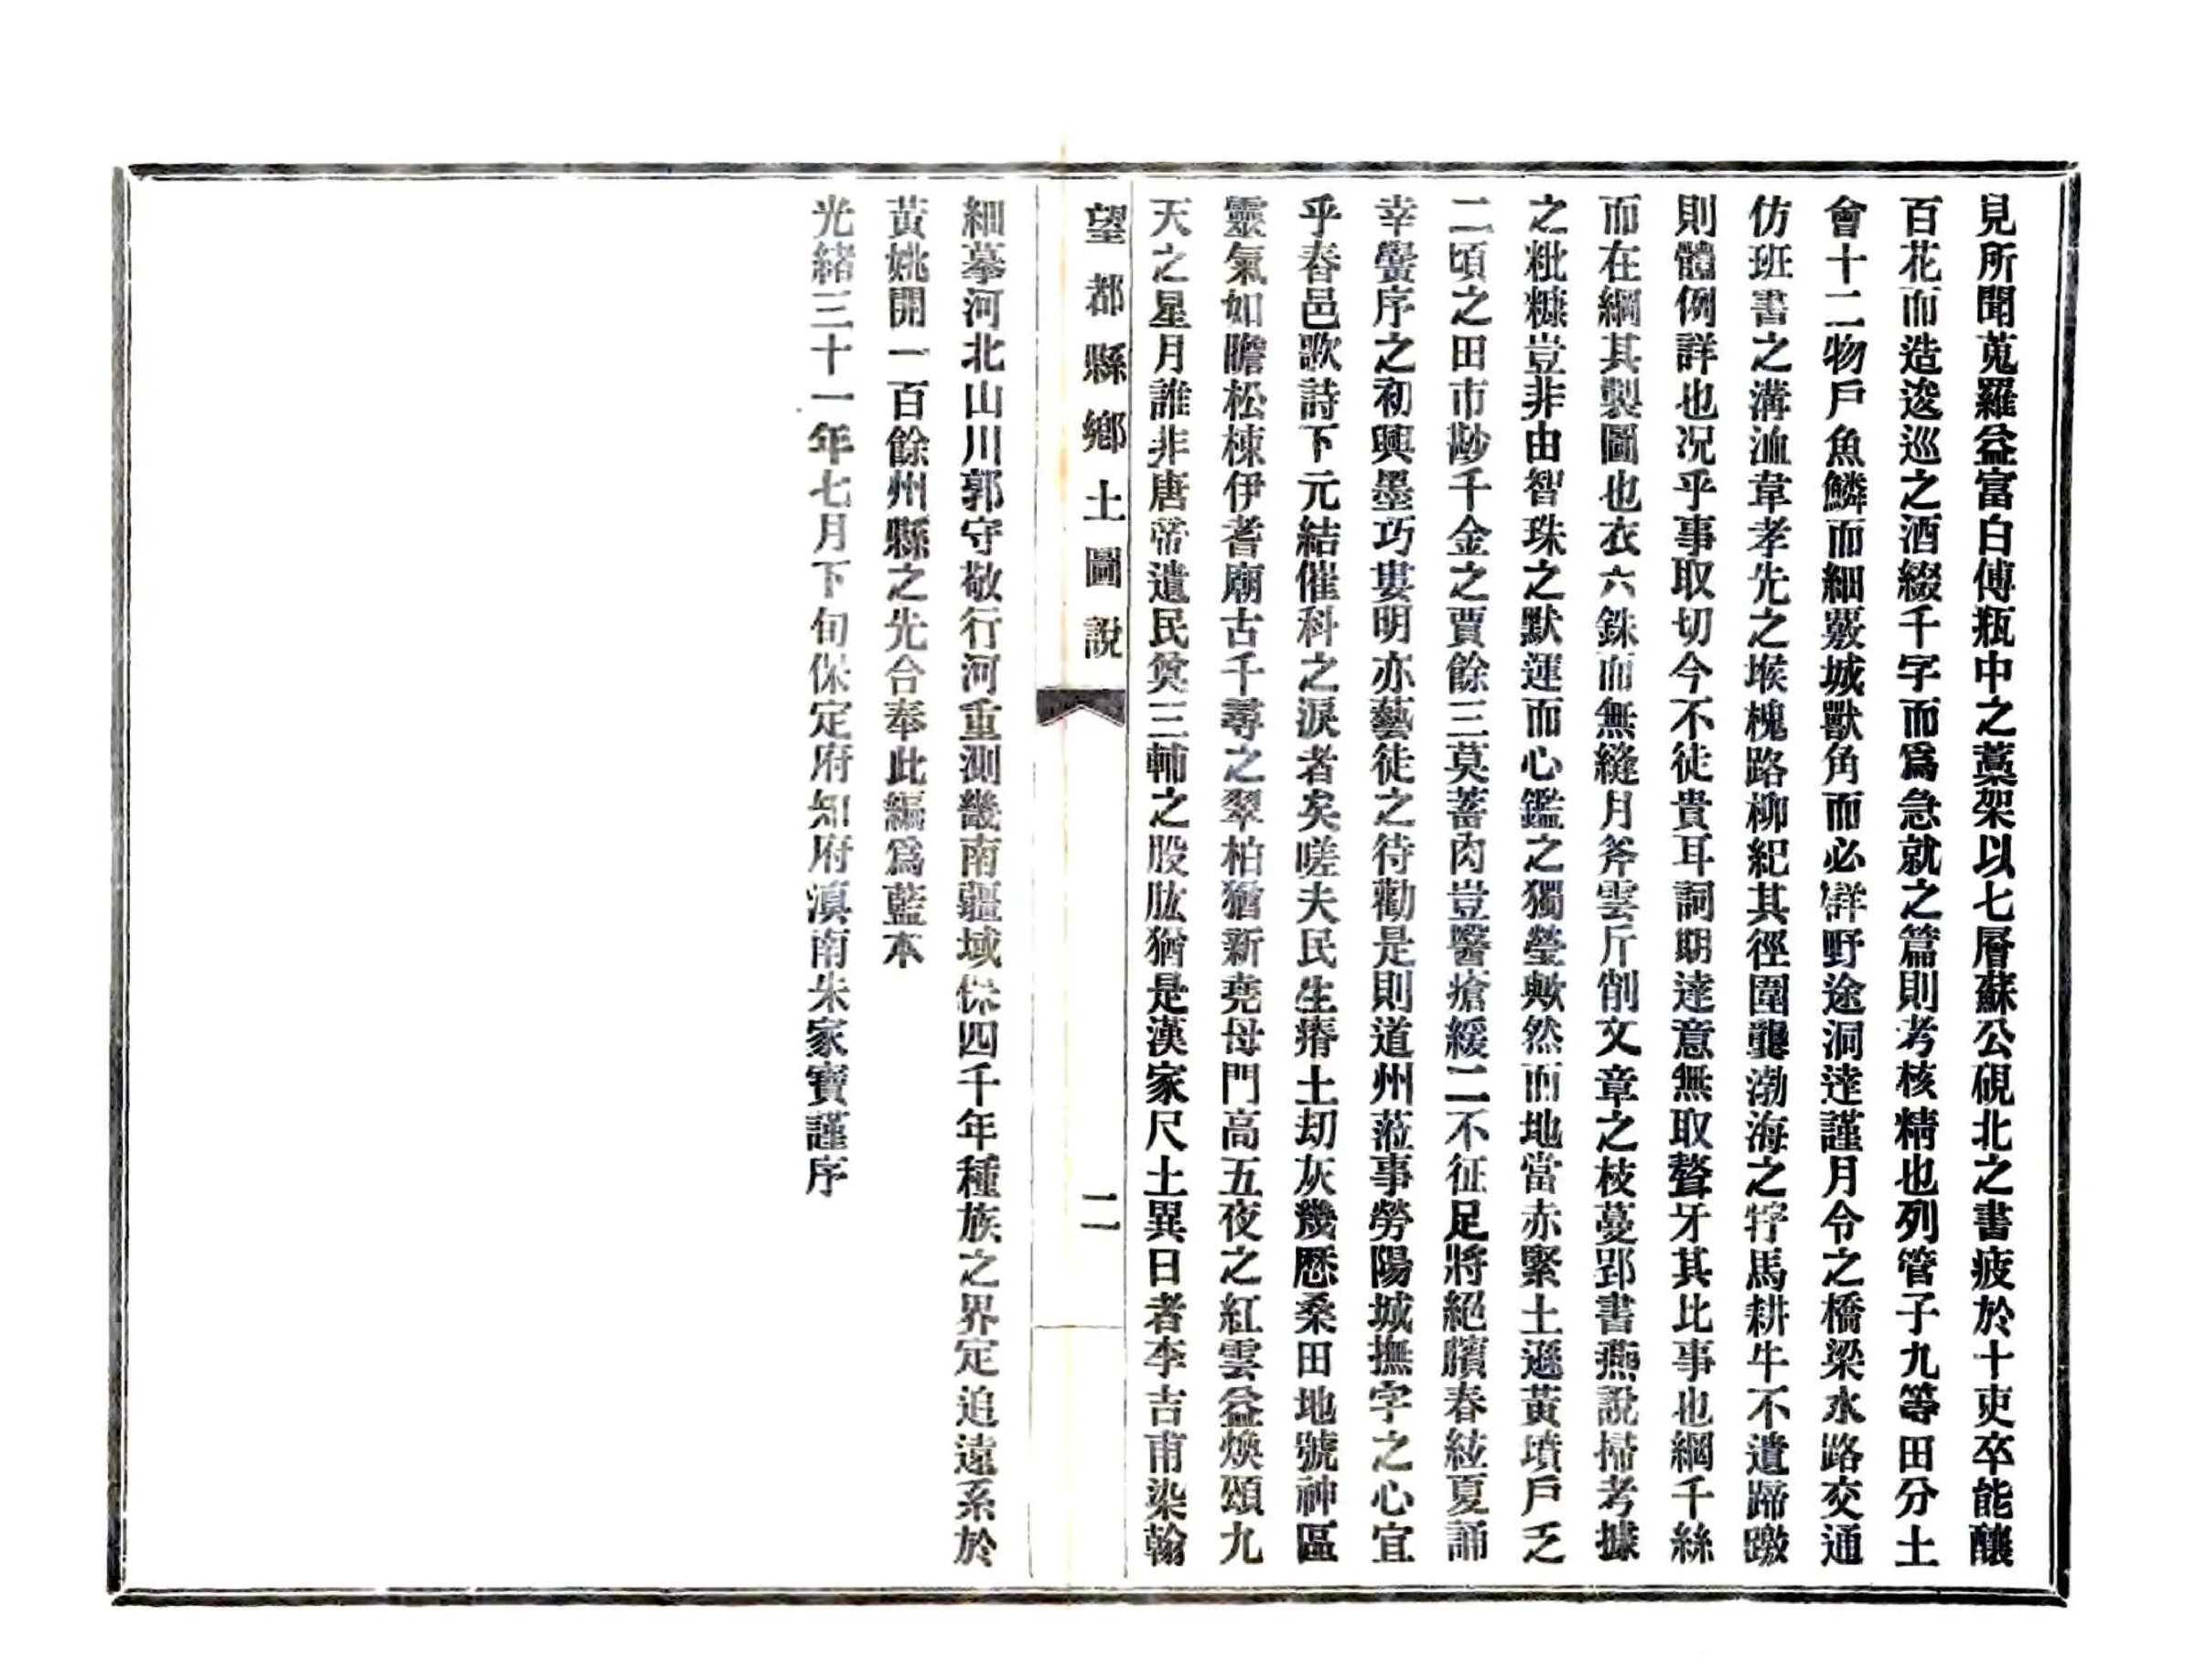 見所聞蒐羅益富白傅瓶中之藁架以七層蘇公硯北之書疲於十吏卒能釀
百花而造逡巡之酒綴千字而爲急就之篇則考核精也列管子九等田分土
會十二物戶魚鱗而細覈城獸角而必詳野途洞達謹月令之橋梁水路交通
仿班書之溝洫韋孝先之堠槐路柳紀其徑圍龔渤海之牸馬耕牛不遺蹄噭
則體例詳也况乎事取切今不徒貴耳詞期達意無取聱牙其比事也綱千絲
而在綱其製圖也衣六銖而無縫月斧雲斤削文章之枝蔓郢書燕說掃考據
之粃糠豈非由智珠之默運而心鑑之獨瑩歟然而地當赤緊土遜黃墳戶乏
二頃之田市尠千金之賈餘三莫蓄肉豈醫瘡緩二不征足將絕臏春絃夏誦
幸黌序之初興墨巧婁明亦藝徒之待勸是則道州蒞事勞陽城撫字之心宜
乎舂邑歌詩下元結催科之淚者矣嗟夫民生瘠土刧灰幾歷桑田地號神區
靈氣如瞻松棟伊耆廟古千尋之翠柏猶新堯母門高五夜之紅雲益煥頌九
天之星月誰非唐帝遺民奠三輔之股肱猶是漢家尺土異日者李吉甫染翰
望都縣鄉土圖說
二
細摹河北山川郭守敬行河重測畿南疆域保四千年種族之界定追遠系於
黃姚開一百餘州縣之先合奉此編爲藍本
光緒三十一年七月下旬保定府知府滇南朱家寶謹序